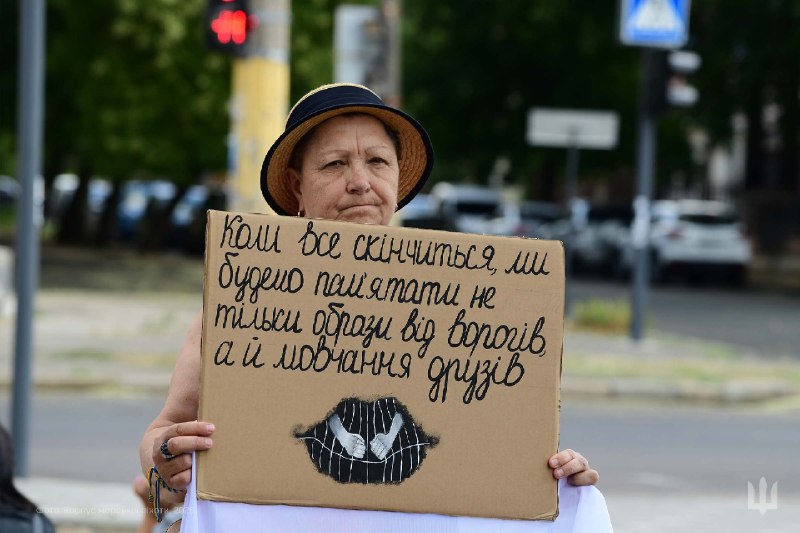 Коли все скінчиться, ми
будемо пам'ятати не
тільки образи від ворогів,
а й мовчання друзів